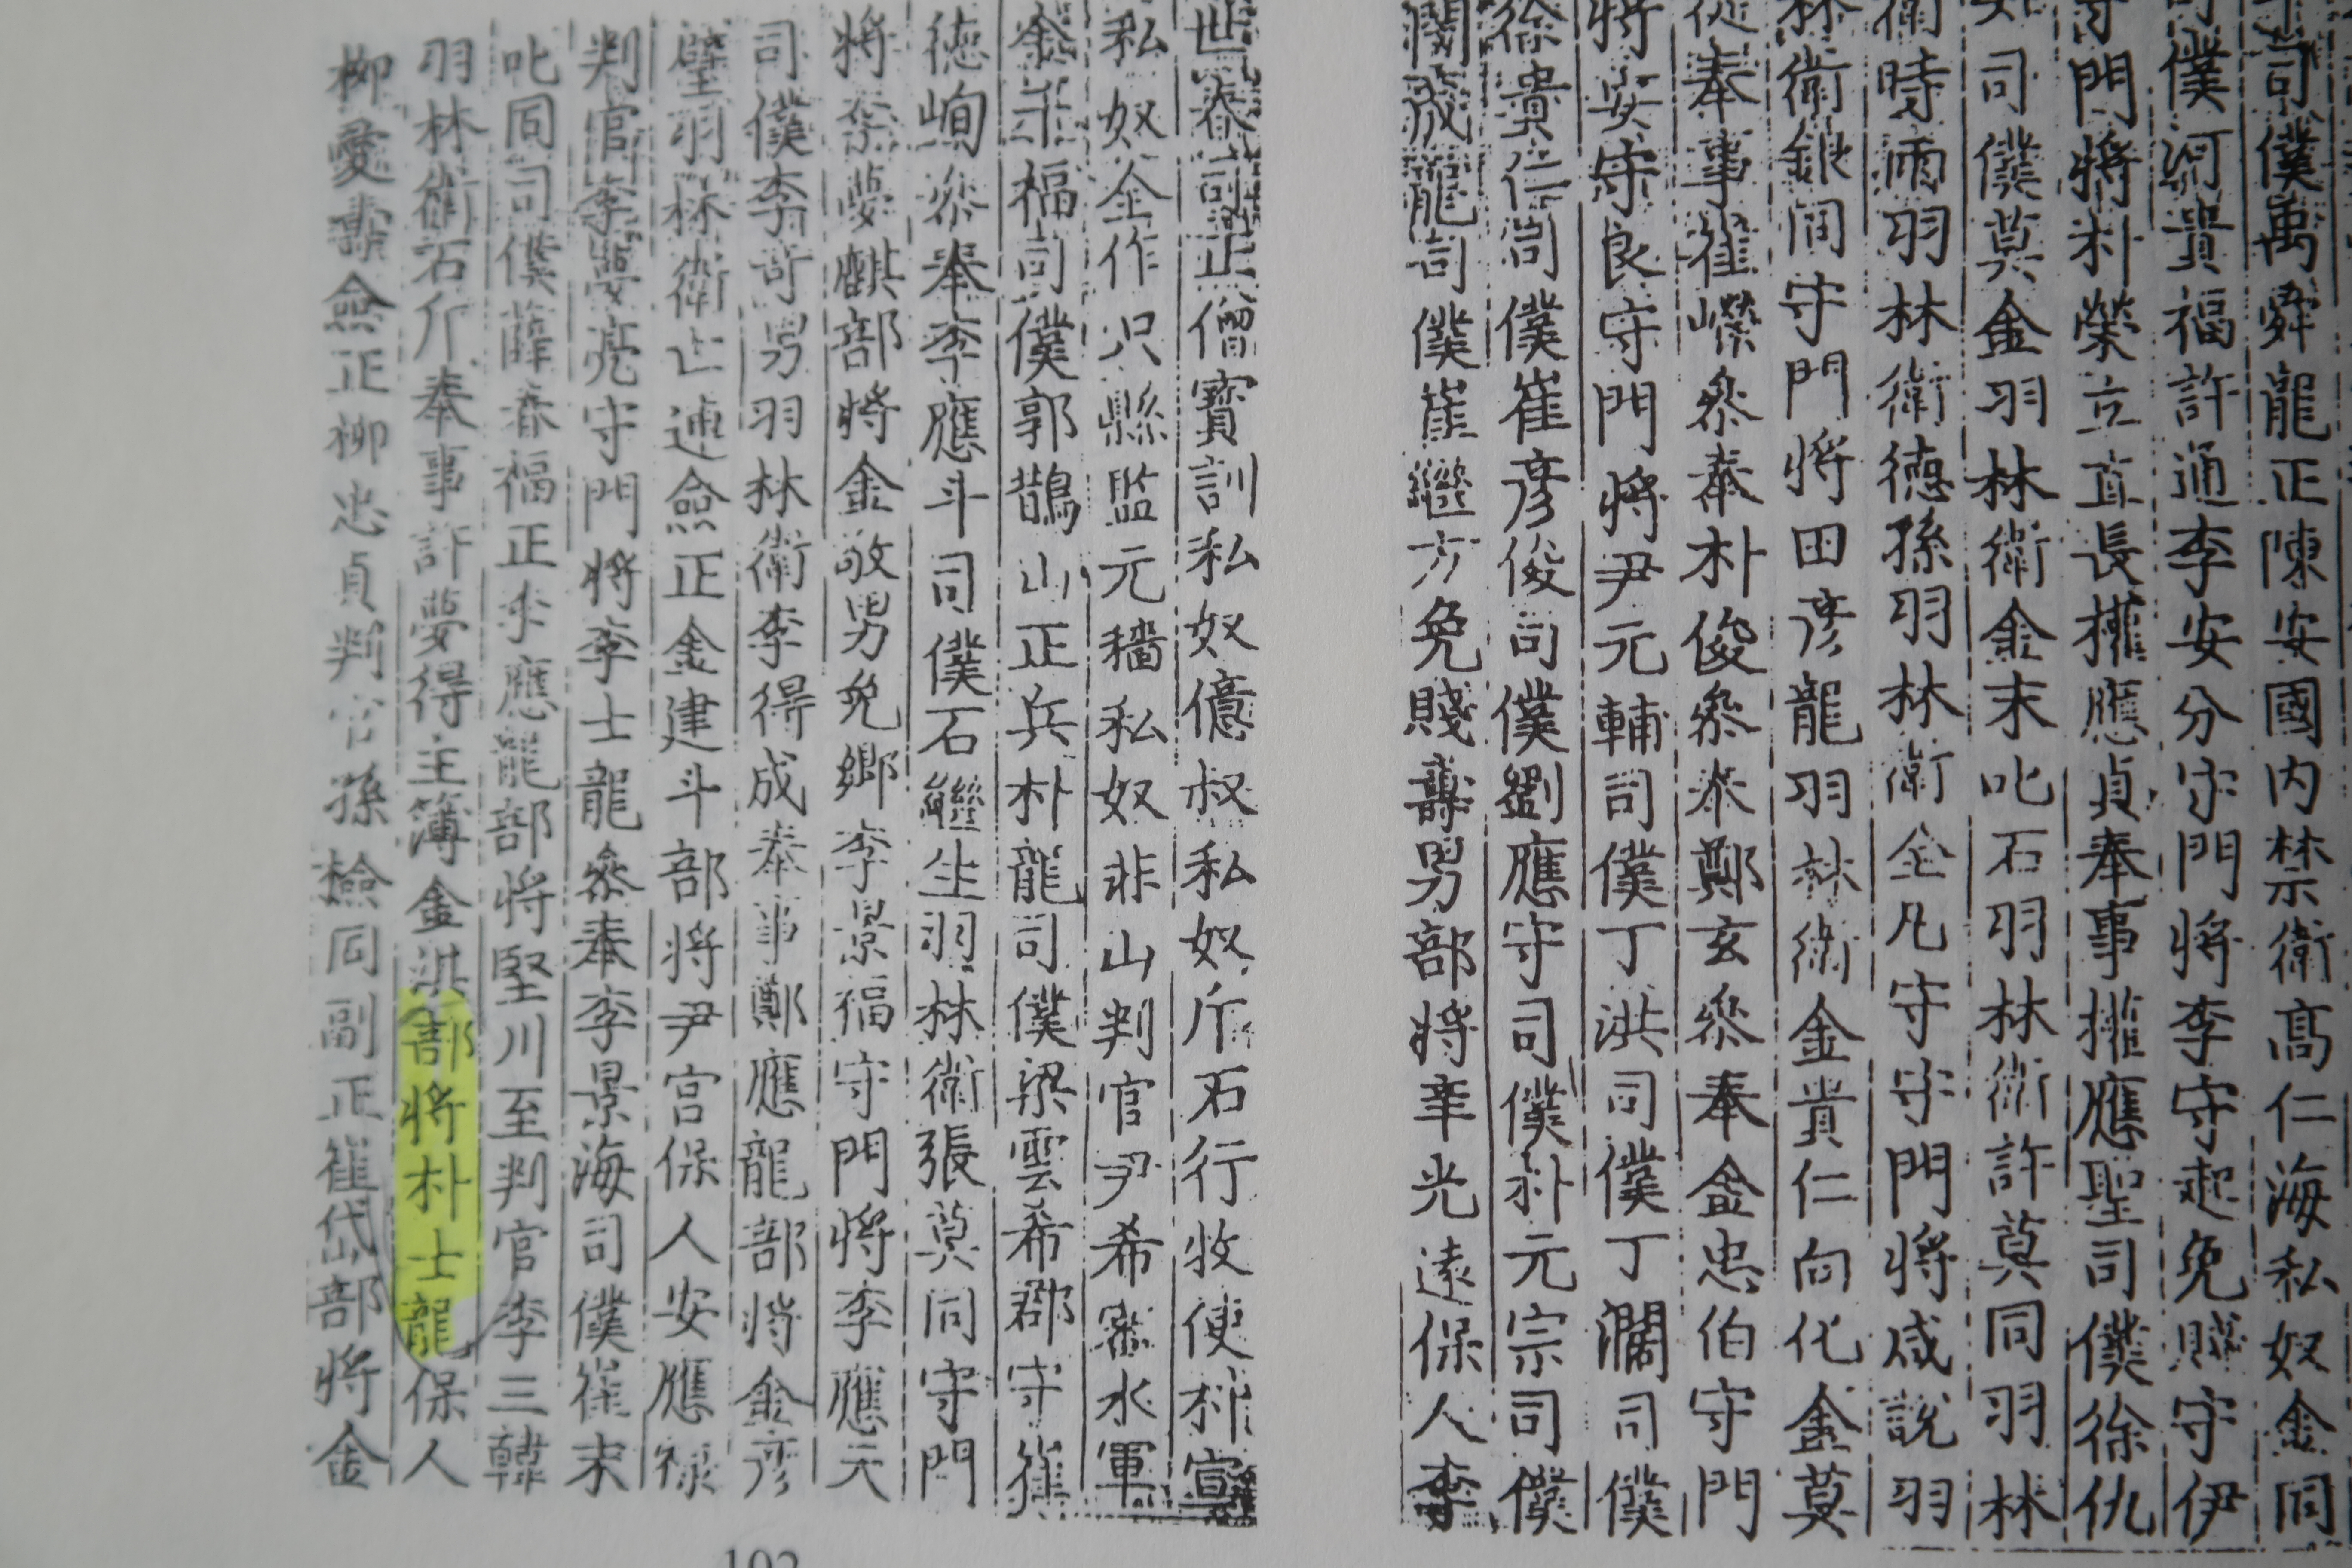 司僕萬舜龍正陳安國内禁衛高仁海私奴金同
僕河貴福許通李安分守門將李守起免賤守伊
門將朴榮立直長權應貞奉事權應聖司僕徐仇
司僕莫金羽林衛金末叱石羽林衛許莫同羽林
衛時雨羽林衛德孫羽林衛全凡守守門將咸説羽
林衛銀同守門將田彦龍羽林衛金貴仁向化金莫
奉事崔嶸參奉朴俊參奉鄭玄參奉金忠伯守門
將安守良守門將尹元輔司僕丁洪司僕丁瀾司僕
徐貴仁司僕崔彦俊司僕劉應守司僕朴元宗司僕
成龍司僕崔繼方免賤壽男部將辛光遠保人李
世春司正僧寶訓私奴億叔私奴斤石行牧使朴宣
私奴仝作只縣監元穡私奴非山判官尹希密水軍
金年福司僕郭鵲山正兵朴龍司僕梁雲希郡守崔
德峋參奉李應斗司僕石繼生羽林衛張莫同守門
將李夢麒部將金敬男免鄉李景福守門將李應元
司僕李奇男羽林衛李得成奉事鄭應龍部將金彦
璧羽林衛亡連僉正金建斗部將尹宮保人安應祿
判官李夢亮守門將李士龍參奉李景海司僕崔末
叱同司僕薛春福正李應龍部將堅川至判官李三韓
羽林衛石斤奉事許夢得主簿金洪部將朴士龍保人
柳愛壽僉正柳忠貞判官孫檢同副正崔岱部將金